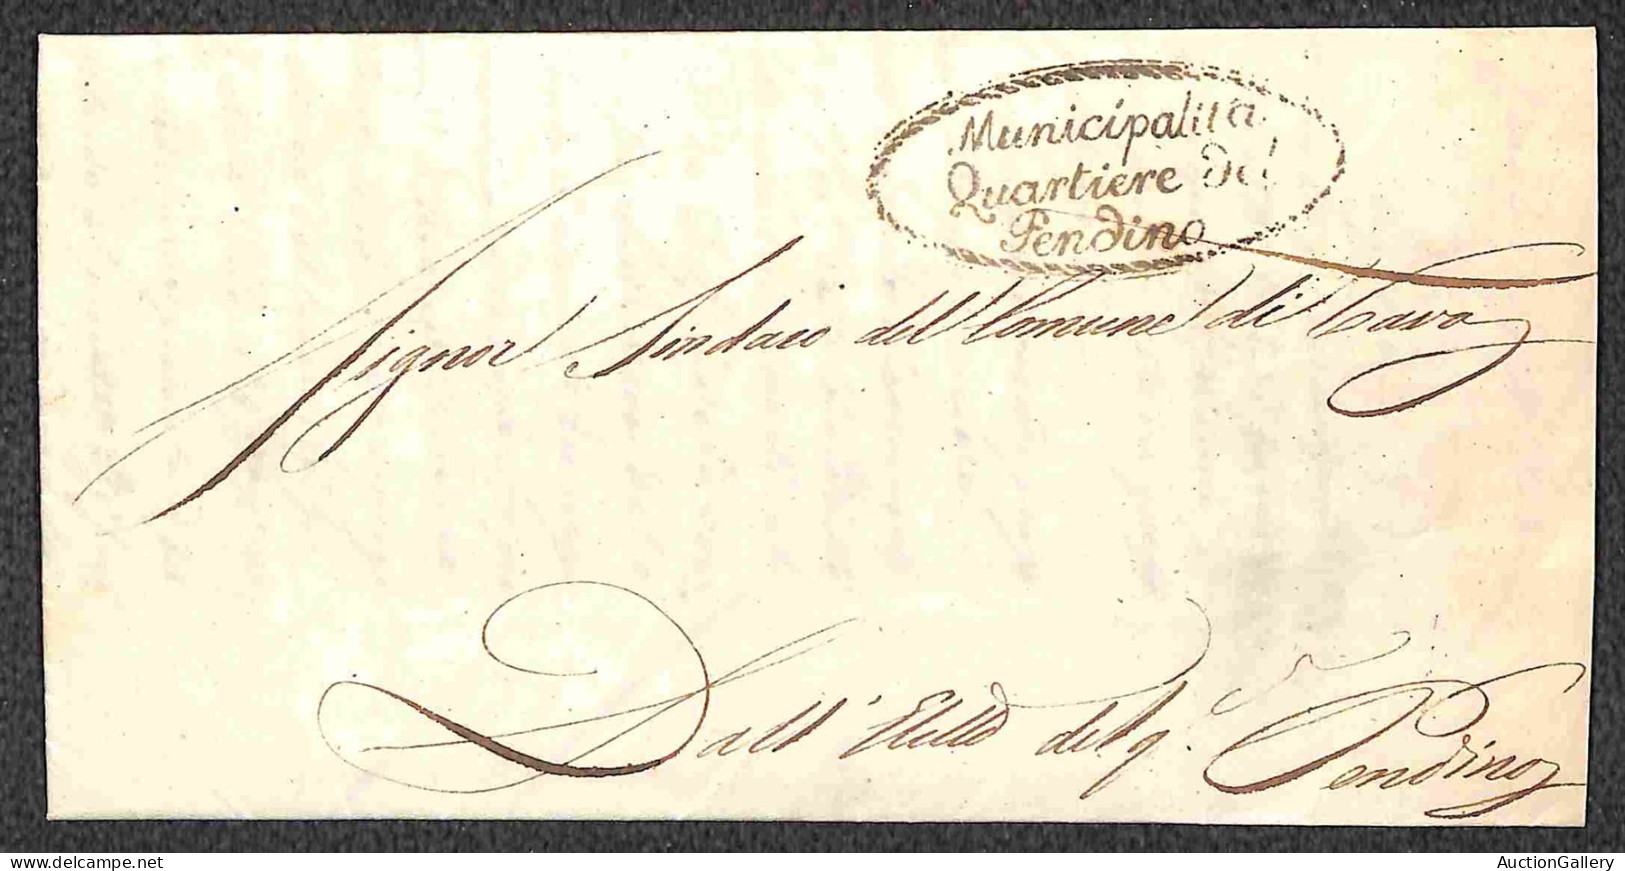 Municipalità
Quartiere del
Pendino
Signor Sindaco del Comune di Cava
Dall' Eletto del q.e Pendino
www.delcampe.net
AuctionGallery